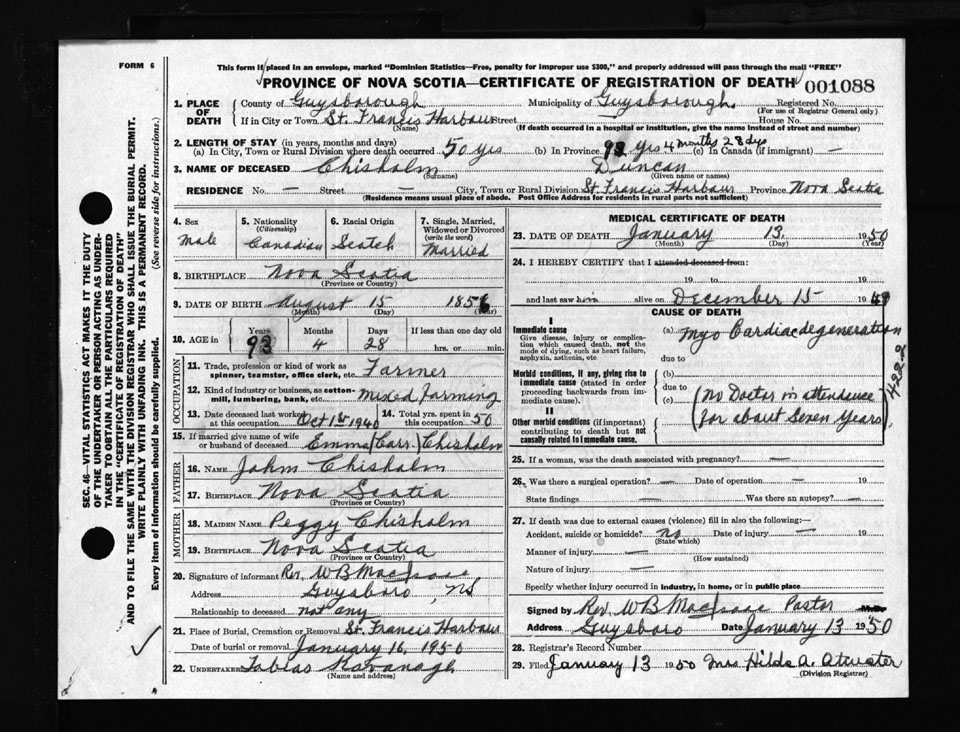 FORM 6
This form if placed in an envelope, marked "Dominion Statistics—Free, penalty for improper use $300," and properly addressed will pass through the mail "FREE"
PROVINCE OF NOVA SCOTIA—CERTIFICATE OF REGISTRATION OF DEATH 001088
1. PLACE OF DEATH
County of Guysborough Municipality of Guysborough Registered No.
(For use of Registrar General only)
If in City or Town St. Francis Harbour Street House No.
(Name) (If death occurred in a hospital or institution, give the name instead of street and number)
2. LENGTH OF STAY (in years, months and days)
(a) In City, Town or Rural Division where death occurred 50 yrs (b) In Province 93 yrs 4 months 28 dys (c) In Canada (if immigrant) —
3. NAME OF DECEASED Chisholm Duncan
(Surname) (Given name or names)
RESIDENCE No. — Street — City, Town or Rural Division St. Francis Harbour Province Nova Scotia
(Residence means usual place of abode. Post Office Address for residents in rural parts not sufficient)
4. Sex Male
5. Nationality (Citizenship) Canadian
6. Racial Origin Scotch
7. Single, Married, Widowed or Divorced (write the word) Married
8. BIRTHPLACE Nova Scotia
(Province or Country)
9. DATE OF BIRTH August 15 1856
(Month) (Day) (Year)
10. AGE in Years 93 Months 4 Days 28 If less than one day old hrs. or min.
OCCUPATION
11. Trade, profession or kind of work as spinner, teamster, office clerk, etc. Farmer
12. Kind of industry or business, as cotton-mill, lumbering, bank, etc. Mixed Farming
13. Date deceased last worked at this occupation Oct 1st 1940
14. Total yrs. spent in this occupation 50
15. If married give name of wife or husband of deceased Emma (Carr) Chisholm
FATHER
16. NAME John Chisholm
17. BIRTHPLACE Nova Scotia
(Province or Country)
MOTHER
18. MAIDEN NAME Peggy Chisholm
19. BIRTHPLACE Nova Scotia
(Province or Country)
20. Signature of informant Rev. W B MacIsaac
Address Guysboro, NS
Relationship to deceased not any
21. Place of Burial, Cremation or Removal St. Francis Harbour
Date of burial or removal January 16, 1950
22. UNDERTAKER Tobias Kavanagh
(Name and address)
MEDICAL CERTIFICATE OF DEATH
23. DATE OF DEATH January 13, 1950
(Month) (Day) (Year)
24. I HEREBY CERTIFY that I attended deceased from:
19 to 19
and last saw him alive on December 15 1949
CAUSE OF DEATH
I
Immediate cause
Give disease, injury or complication which caused death, not the mode of dying, such as heart failure, asphyxia, asthenia, etc
(a) Myo Cardiac degeneration
due to
Morbid conditions, if any, giving rise to immediate cause (stated in order proceeding backwards from immediate cause).
(b)
due to
(c) (No Doctor in attendance
for about Seven Years)
4222
II
Other morbid conditions (if important) contributing to death but not causally related to immediate cause.
25. If a woman, was the death associated with pregnancy? —
26. Was there a surgical operation? — Date of operation — 19
State findings — Was there an autopsy? —
27. If death was due to external causes (violence) fill in also the following:—
Accident, suicide or homicide? no Date of injury — 19
(State which)
Manner of injury —
(How sustained)
Nature of injury —
Specify whether injury occurred in industry, in home, or in public place
Signed by Rev. W B MacIsaac Pastor M.D.
Address Guysboro Date January 13 1950
28. Registrar's Record Number
29. Filed January 13 1950 Mrs Hilda A. Atwater
(Division Registrar)
SEC. 46—VITAL STATISTICS ACT MAKES IT THE DUTY
OF THE UNDERTAKER OR PERSON ACTING AS UNDER-
TAKER TO OBTAIN ALL THE PARTICULARS REQUIRED
IN THE "CERTIFICATE OF REGISTRATION OF DEATH"
AND TO FILE THE SAME WITH THE DIVISION REGISTRAR WHO SHALL ISSUE THE BURIAL PERMIT.
WRITE PLAINLY WITH UNFADING INK. THIS IS A PERMANENT RECORD.
Every item of information should be carefully supplied. (See reverse side for instructions.)